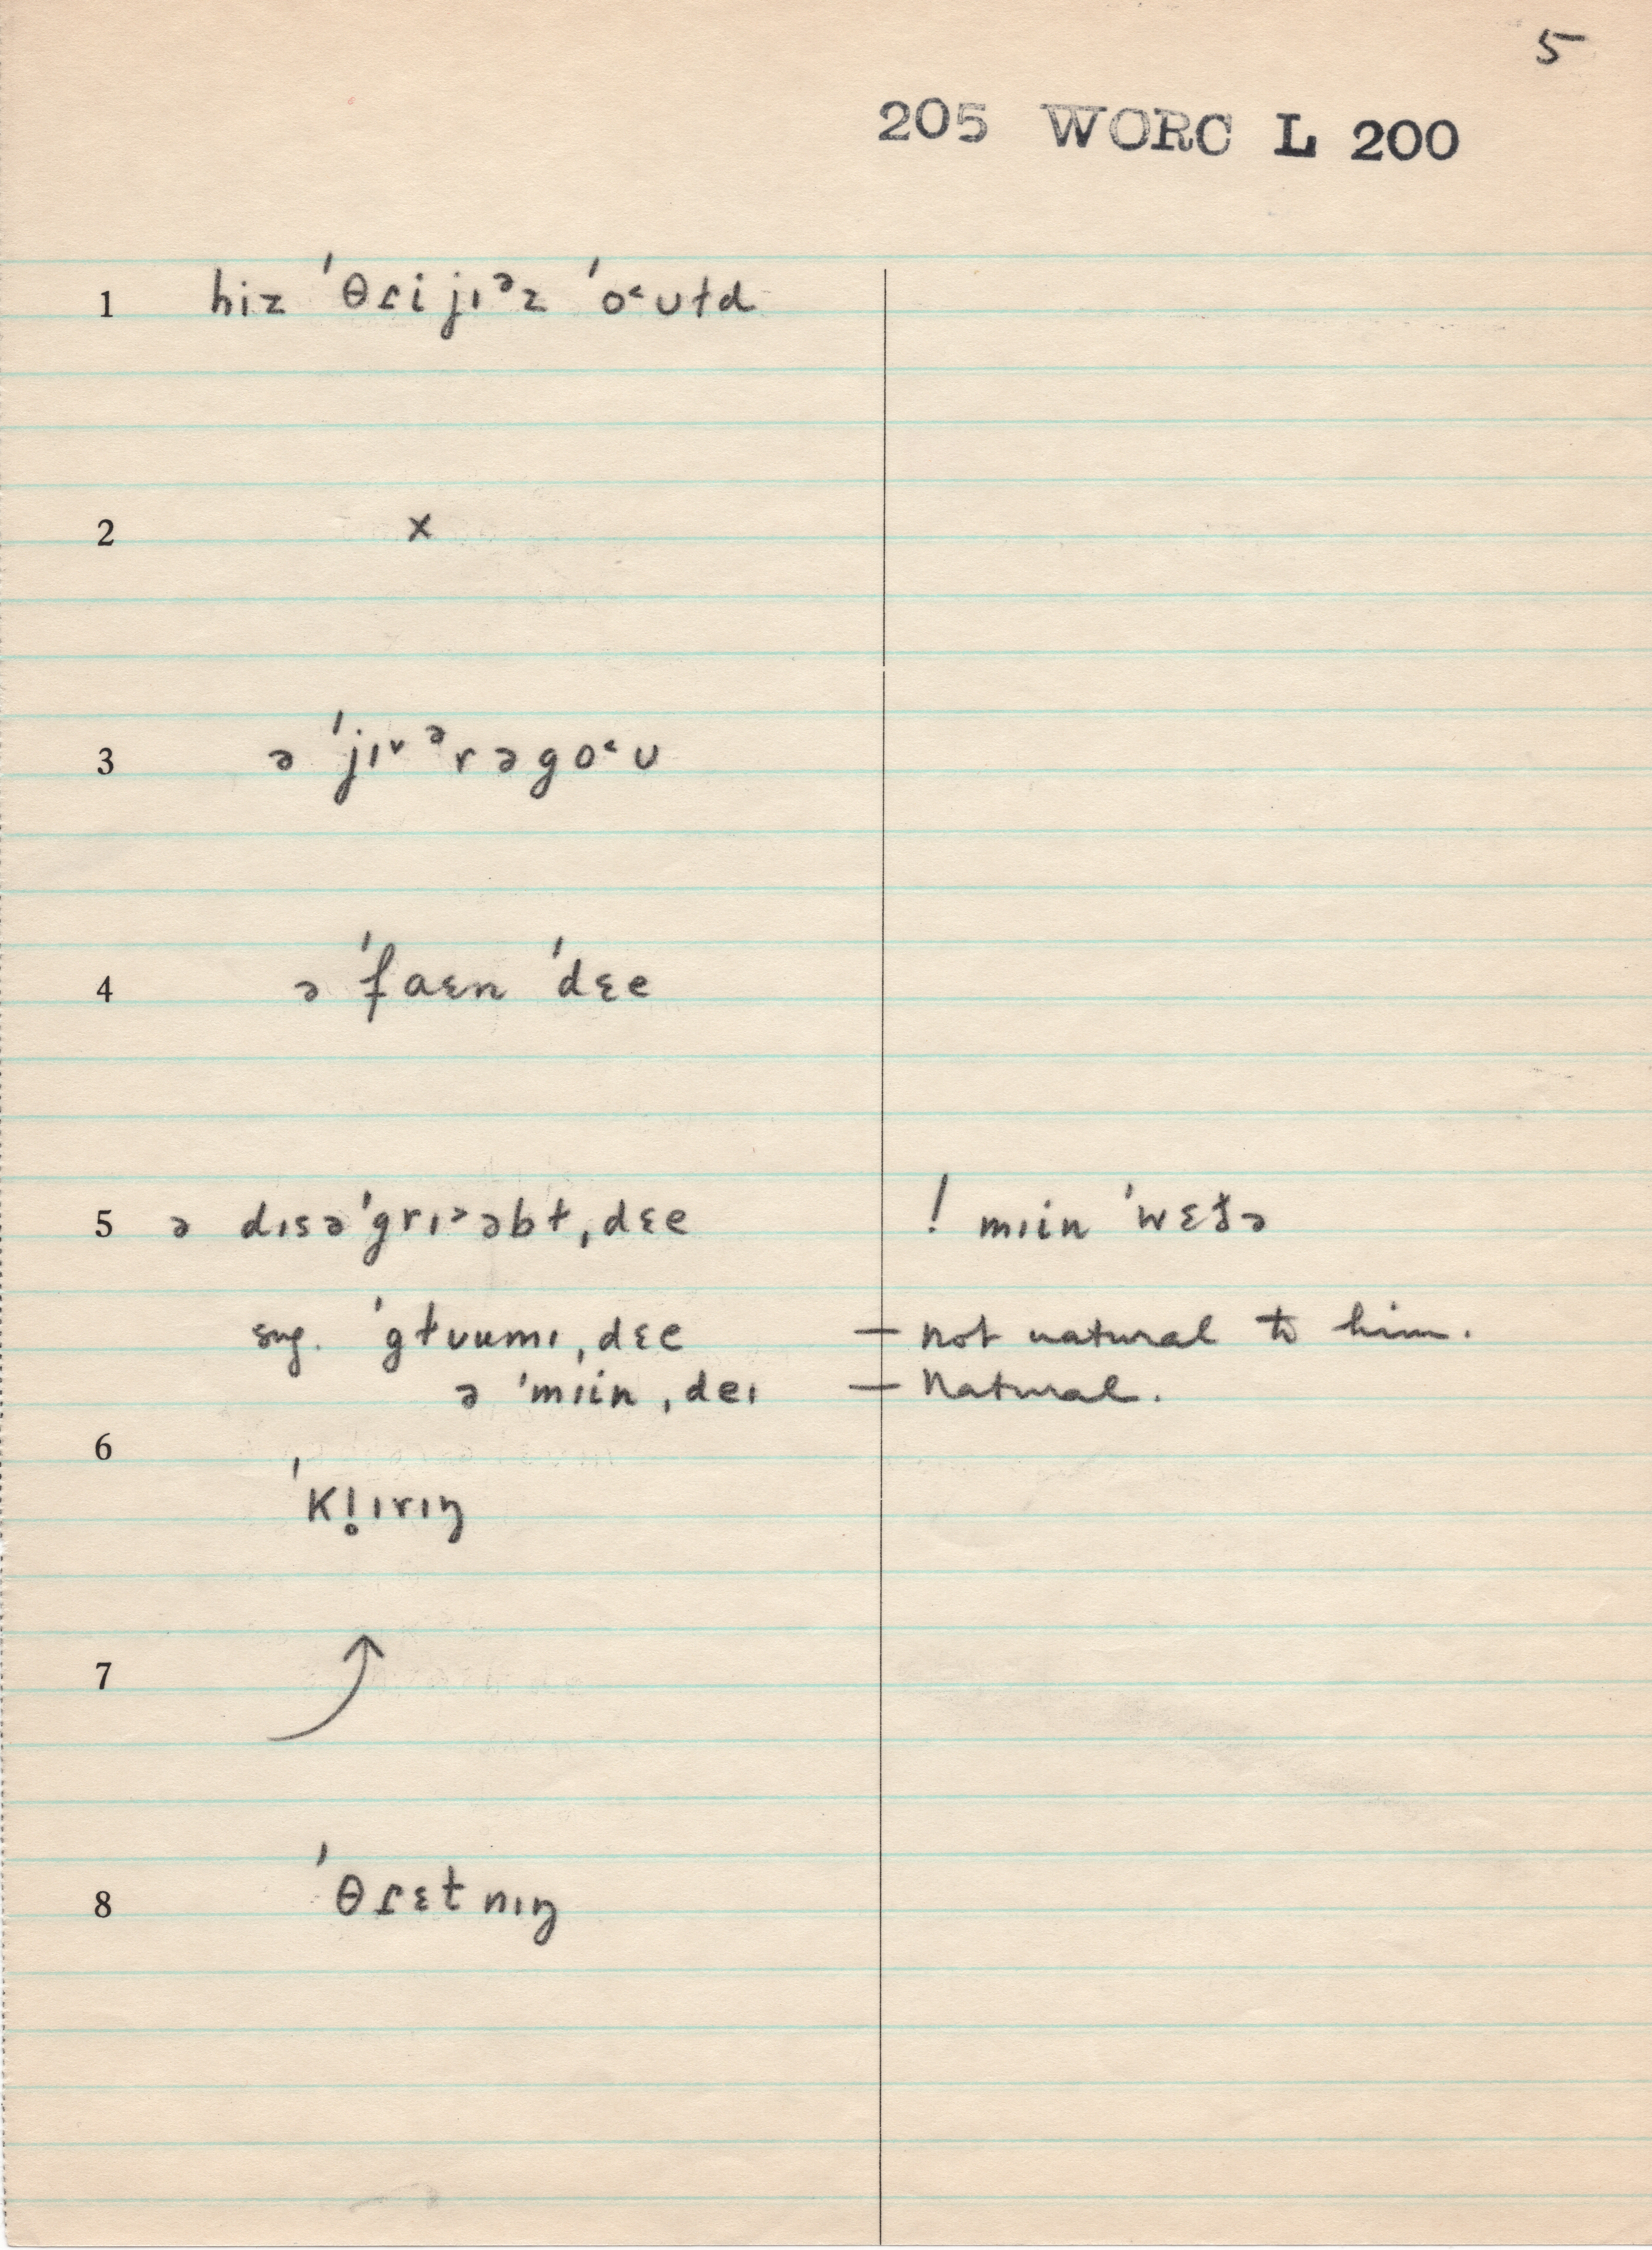 5
205 WORC L 200
1 hiz ˈθɾi jɪᵊz ˈo˂ʊɫd
2 x
3 ə ˈjɪ˅ᵊrəgo˂ʊ
4 ə ˈfaɛn ˈdɛe
5 ə dɪsəˈgrɪ˃əbɫˌdɛe ! mɪin ˈwɛðə
sug. ˈgɫʊumɪˌdɛe — not natural to him.
ə ˈmɪinˌdeɪ — natural.
6
ˈkl̥ɪrɪŋ
7 ↑
8 ˈθɾɛtnɪŋ